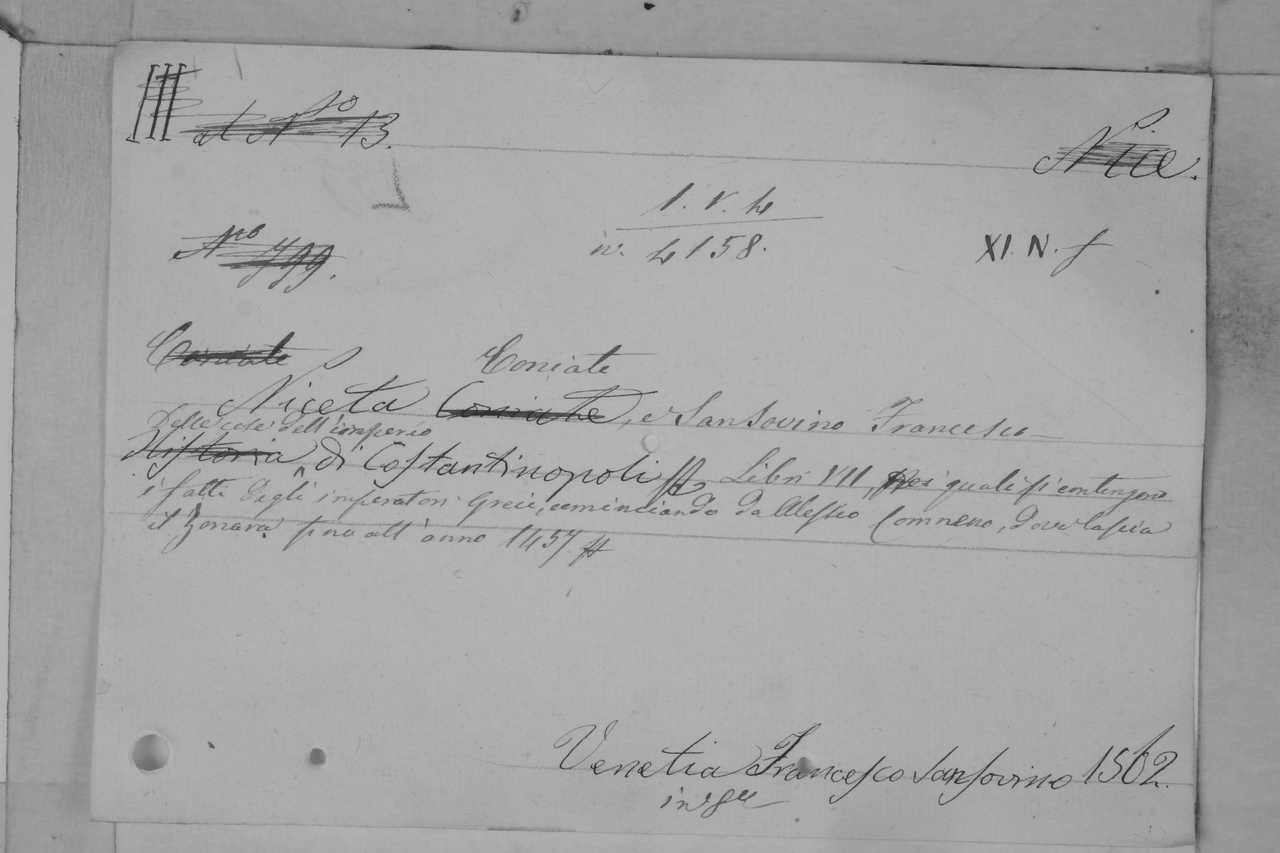 III al Nro 13.
Nice.
1. V. 4
Nro 799.
in. 4158.
XI. N. f
Coniate
Coniate
Niceta Coniate, e Sansovino Francesco
Delle cose dell'imperio
Historia di Costantinopoli Libri VII, nei quali si contengono
i fatti degli imperatori Greci, cominciando da Alessio Comneno, dove lascia
il Zonara sino all'anno 1457.
Venetia Francesco Sansovino 1562.
in 8ve